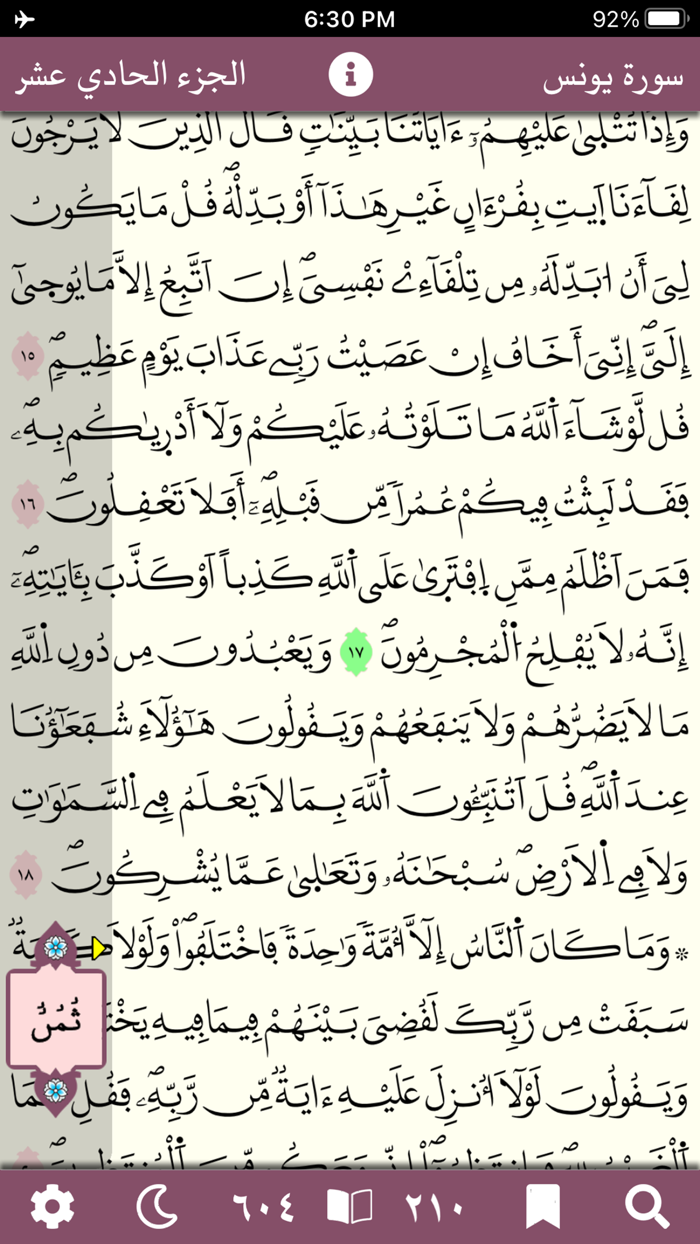 6:30 PM 92%
سورة يونس الجزء الحادي عشر
وَإِذَا تُتْلَىٰ عَلَيْهِمُۥٓ ءَايَاتُنَا بَيِّنَٰتٖ قَالَ اَ۬لذِينَ لَا يَرْجُونَ
لِقَآءَنَا اَ۪يتِ بِقُرْءَانٍ غَيْرِ هَٰذَآ أَوْ بَدِّلْهُۖ قُلْ مَا يَكُونُ
لِيَ أَنُ ا۟بَدِّلَهُۥ مِن تِلْقَآءِےْ نَفْسِيَۖ إِنَ اَتَّبِعُ إِلَّا مَا يُوحَىٰٓ
إِلَيَّۖ إِنِّيَ أَخَافُ إِنْ عَصَيْتُ رَبِّے عَذَابَ يَوْمٍ عَظِيمٖۖ ١٥
قُل لَّوْ شَآءَ اَ۬للَّهُ مَا تَلَوْتُهُۥ عَلَيْكُمْ وَلَآ أَدْر۪يٰكُم بِهِۦۖ
فَقَدْ لَبِثْتُ فِيكُمْ عُمُراٗ مِّن قَبْلِهِۦٓۖ أَفَلَا تَعْقِلُونَۖ ١٦
فَمَنَ اَظْلَمُ مِمَّنِ اِ۪فْتَر۪يٰ عَلَى اَ۬للَّهِ كَذِباً اَوْ كَذَّبَ بِـَٔايَٰتِهِۦٓۖ
إِنَّهُۥ لَا يُفْلِحُ اُ۬لْمُجْرِمُونَۖ ١٧ وَيَعْبُدُونَ مِن دُونِ اِ۬للَّهِ
مَا لَا يَضُرُّهُمْ وَلَا يَنفَعُهُمْ وَيَقُولُونَ هَٰٓؤُلَآءِ شُفَعَٰٓؤُنَا
عِندَ اَ۬للَّهِۖ قُلَ اَتُنَبِّـُٔونَ اَ۬للَّهَ بِمَا لَا يَعْلَمُ فِے اِ۬لسَّمَٰوَٰتِ
وَلَا فِے اِ۬لَارْضِۖ سُبْحَٰنَهُۥ وَتَعَٰلَىٰ عَمَّا يُشْرِكُونَۖ ١٨
۞ وَمَا كَانَ اَ۬لنَّاسُ إِلَّآ أُمَّةٗ وَٰحِدَةٗ فَاخْتَلَفُواْۖ وَلَوْلَا
سَبَقَتْ مِن رَّبِّكَ لَقُضِيَ بَيْنَهُمْ فِيمَا فِيهِ
وَيَقُولُونَ لَوْلَآ أُنزِلَ عَلَيْهِ ءَايَةٞ مِّن رَّبِّهِۦۖ فَقُلِ
ثُمُنُ
٢١٠ ٦٠٤